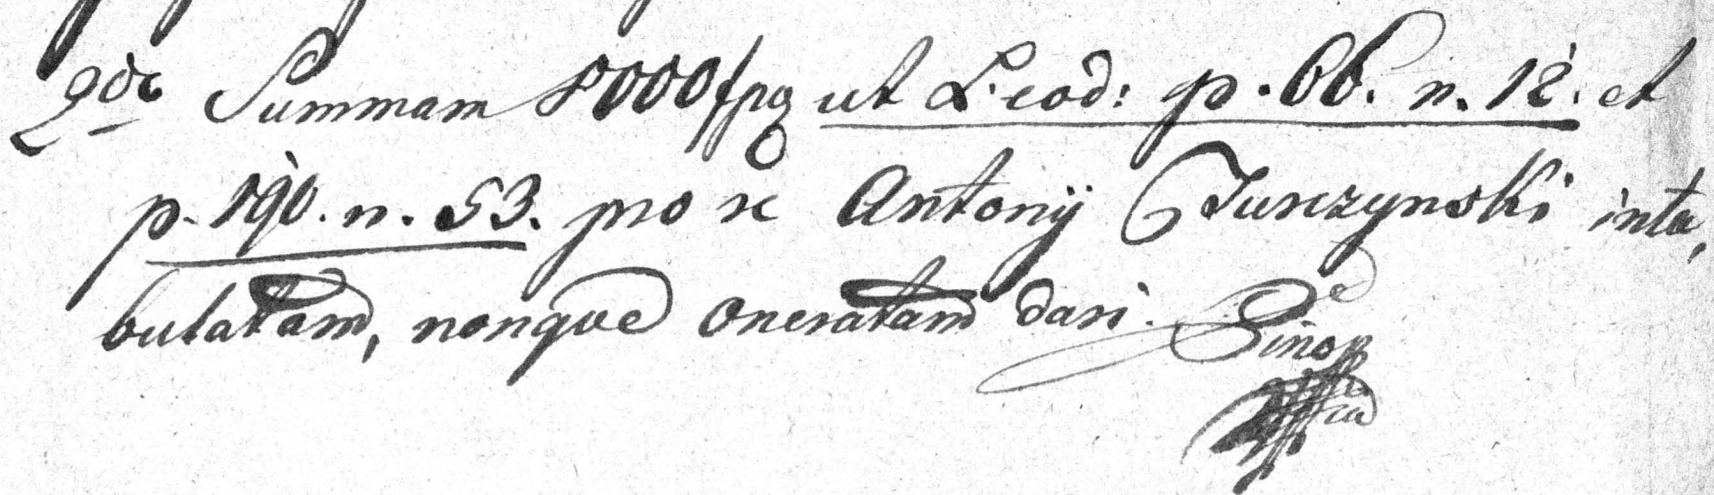 2do Summam 8000 fpq ut L. eod: p. 66. n. 12. et
p. 190. n. 53. pro re Antonÿ Jurczynski inta,
bulatam, nonque oneratam dari.